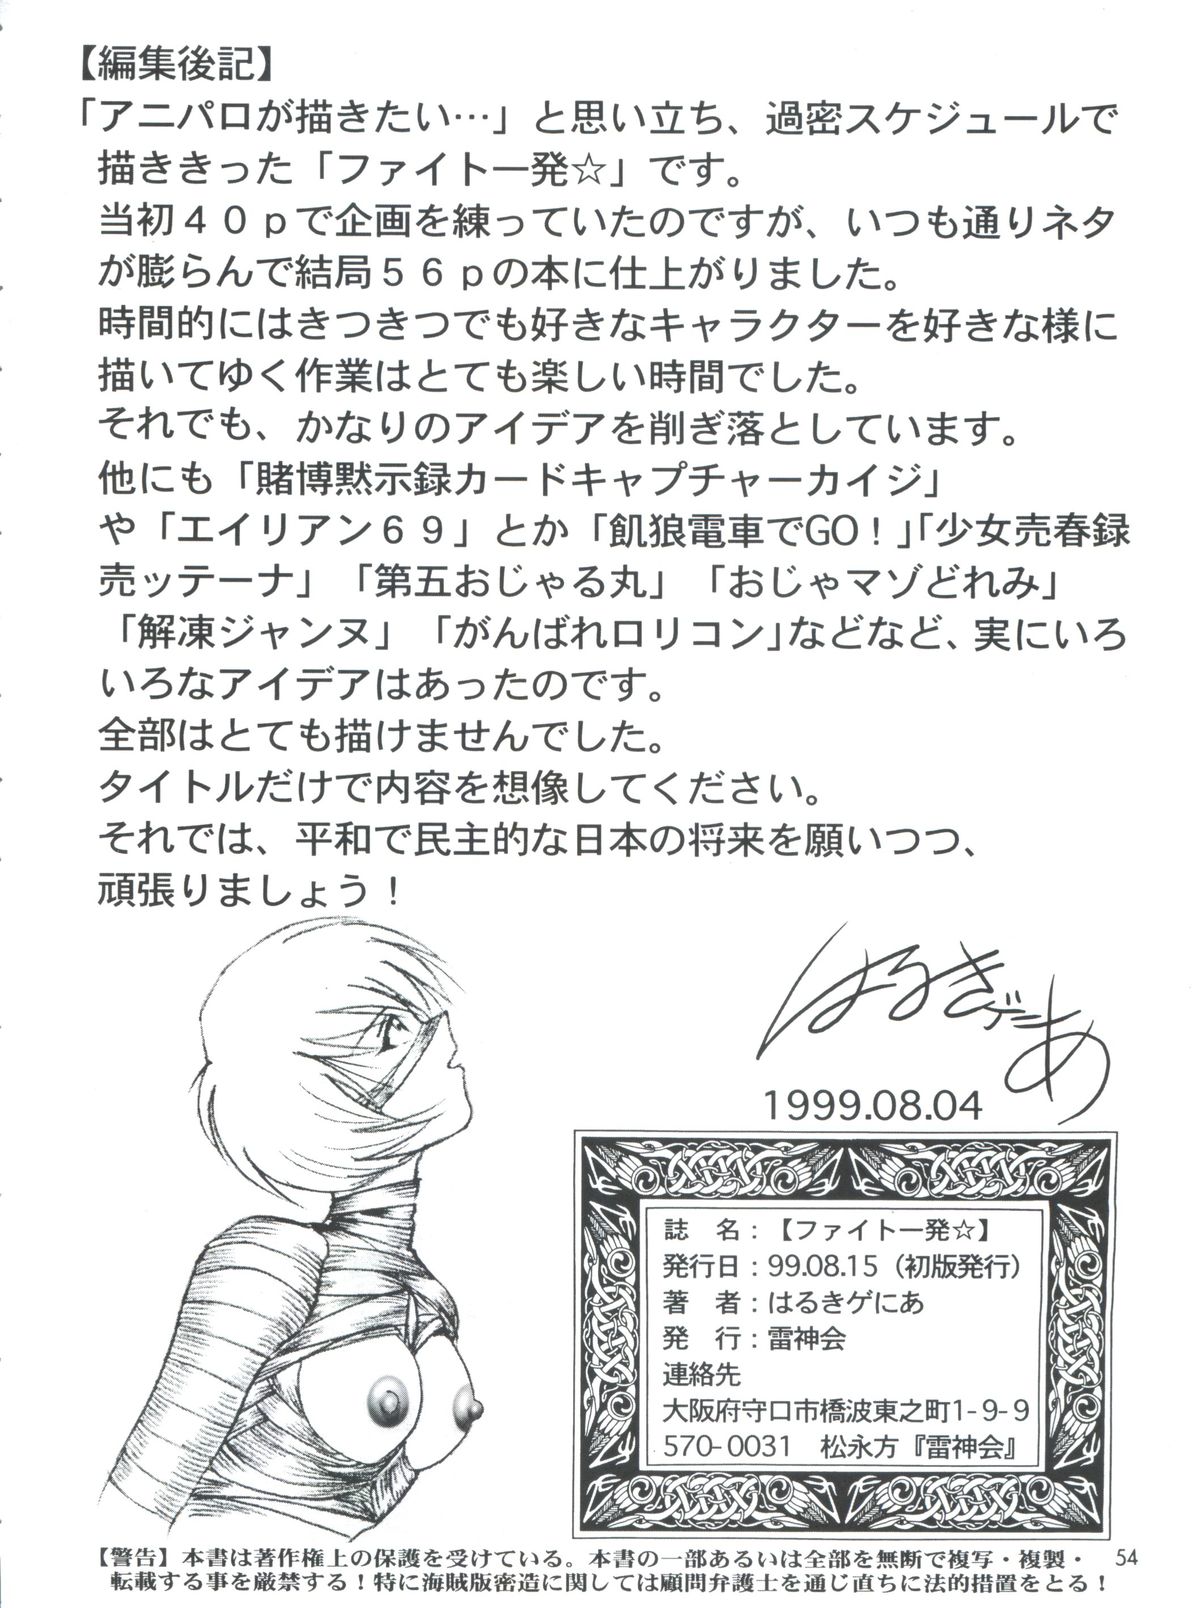 【編集後記】
「アニパロが描きたい…」と思い立ち、過密スケジュールで
描ききった「ファイト一発☆」です。
当初４０ｐで企画を練っていたのですが、いつも通りネタ
が膨らんで結局５６ｐの本に仕上がりました。
時間的にはきつきつでも好きなキャラクターを好きな様に
描いてゆく作業はとても楽しい時間でした。
それでも、かなりのアイデアを削ぎ落としています。
他にも「賭博黙示録カードキャプチャーカイジ」
や「エイリアン６９」とか「飢狼電車でGO！」「少女売春録
売ッテーナ」「第五おじゃる丸」「おじゃマゾどれみ」
「解凍ジャンヌ」「がんばれロリコン」などなど、実にいろ
いろなアイデアはあったのです。
全部はとても描けませんでした。
タイトルだけで内容を想像してください。
それでは、平和で民主的な日本の将来を願いつつ、
頑張りましょう！
はるきゲにあ
1999.08.04
誌　名：【ファイト一発☆】
発行日：99.08.15（初版発行）
著　者：はるきゲにあ
発　行：雷神会
連絡先
大阪府守口市橋波東之町1-9-9
570-0031　松永方『雷神会』
【警告】本書は著作権上の保護を受けている。本書の一部あるいは全部を無断で複写・複製・
転載する事を厳禁する！特に海賊版密造に関しては顧問弁護士を通じ直ちに法的措置をとる！
54